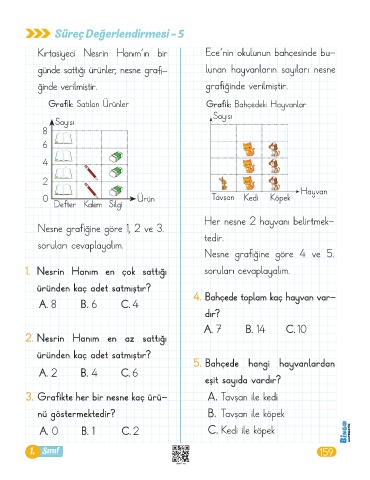 Süreç Değerlendirmesi - 5
Kırtasiyeci Nesrin Hanım'ın bir
günde sattığı ürünler, nesne grafi-
ğinde verilmiştir.
Grafik: Satılan Ürünler
Sayısı
8
6
4
2
0
Defter Kalem Silgi
Ürün
Nesne grafiğine göre 1, 2 ve 3.
soruları cevaplayalım.
1. Nesrin Hanım en çok sattığı
üründen kaç adet satmıştır?
A. 8 B. 6 C. 4
2. Nesrin Hanım en az sattığı
üründen kaç adet satmıştır?
A. 2 B. 4 C. 6
3. Grafikte her bir nesne kaç ürü-
nü göstermektedir?
A. 0 B. 1 C. 2
Ece'nin okulunun bahçesinde bu-
lunan hayvanların sayıları nesne
grafiğinde verilmiştir.
Grafik: Bahçedeki Hayvanlar
Sayısı
Tavşan Kedi Köpek
Hayvan
Her nesne 2 hayvanı belirtmek-
tedir.
Nesne grafiğine göre 4 ve 5.
soruları cevaplayalım.
4. Bahçede toplam kaç hayvan var-
dır?
A. 7 B. 14 C. 10
5. Bahçede hangi hayvanlardan
eşit sayıda vardır?
A. Tavşan ile kedi
B. Tavşan ile köpek
C. Kedi ile köpek
1. Sınıf
159
BİNGO